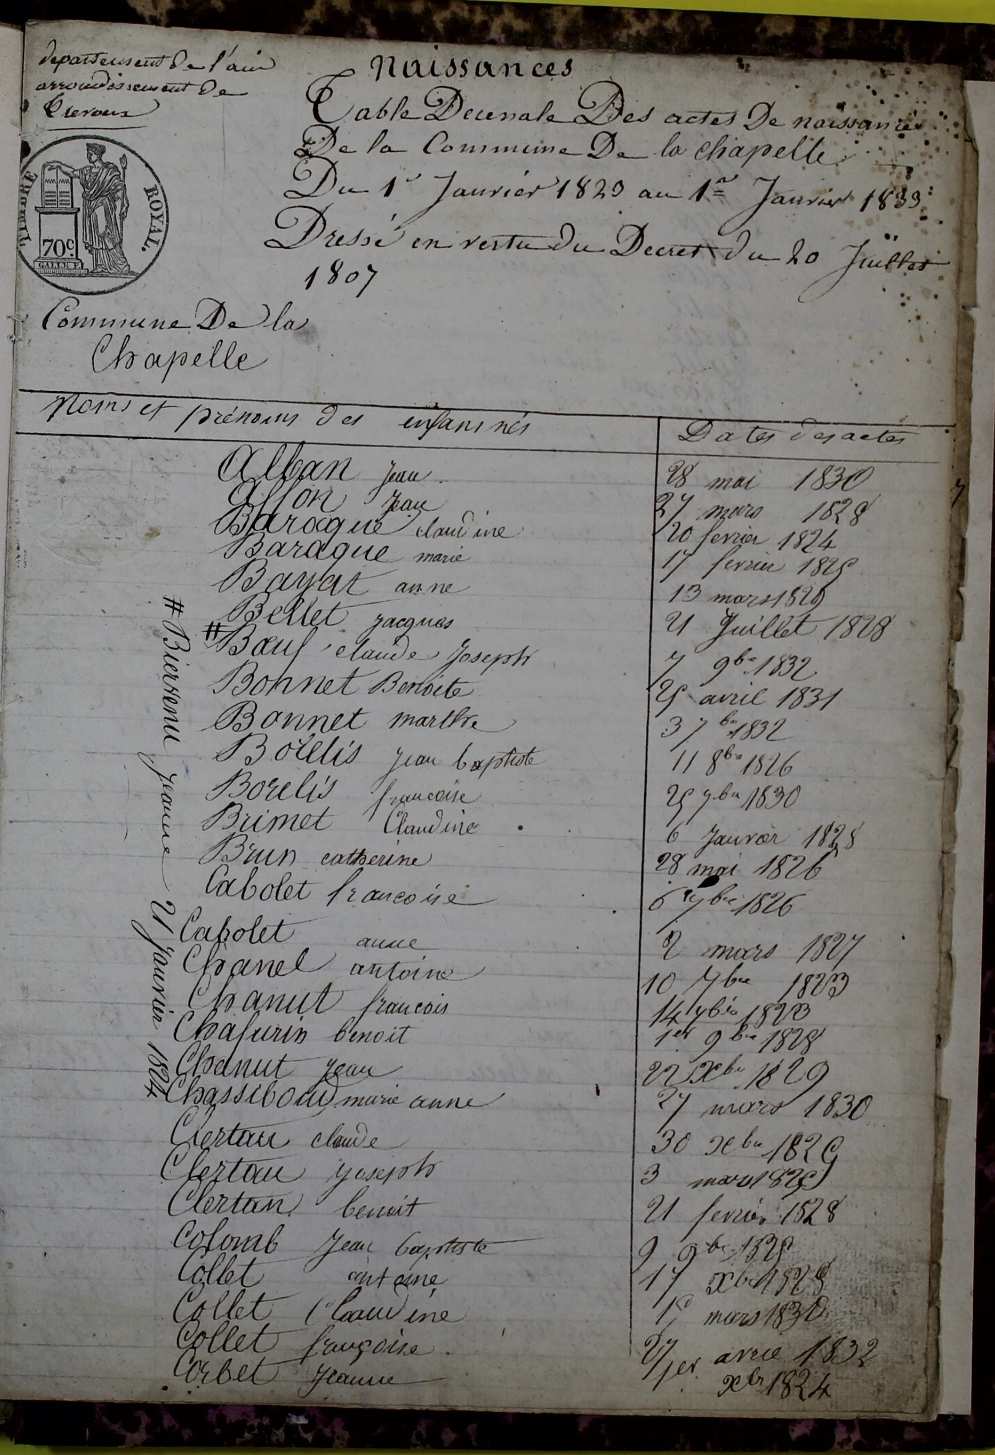 département de l'ain
arrondissement de
trevoux
Naissances
Table Decenale Des actes De naissances
De la Commune De la chapelle
Du 1er Janvier 1823 au 1er Janvier 1833
Dressé en vertu du Decret du 20 Juillet
1807
TIMBRE ROYAL.
70c
Commune De la
Chapelle
Noms et prénoms des enfans nés
Dates des actes
Alban Jean 28 mai 1830
Jean 27 mars 1828
Baraque claudine 20 fevrier 1824
Baraque marie 17 fevrier 1825
Bayat anne 13 mars 1829
Bellet jacques 21 Juillet 1828
# Bœuf claude Joseph 7 9bre 1832
Bonnet Benoite 25 avril 1831
Bonnet marthe 3 7bre 1832
Borélis jean baptiste 11 8bre 1826
Borelis francoise 25 7bre 1830
Brimet Claudine 6 Janvier 1828
Brun catherine 28 mai 1826
Cabolet francoise 6 7bre 1826
Cabolet anne 2 mars 1827
Chanel antoine 10 7bre 1823
Chanut francois 14 9bre 1823
benoit 1er 9bre 1828
Chanut Jean 22 Xbre 1829
Chassiboud marie anne 27 mars 1830
Clertan claude 30 Xbre 1825
Clertan Joseph 3 mars 1825
Clertan benoit 21 fevrier 1828
Colomb Jean baptiste 9 9bre 1825
Collet antoine 17 Xbre 1828
Collet Claudine 15 mars 1830
Collet françoise 27 avril 1832
Corbet Jeanne 1er Xbre 1824
# Bienvenu jeanne 21 janvier 1824